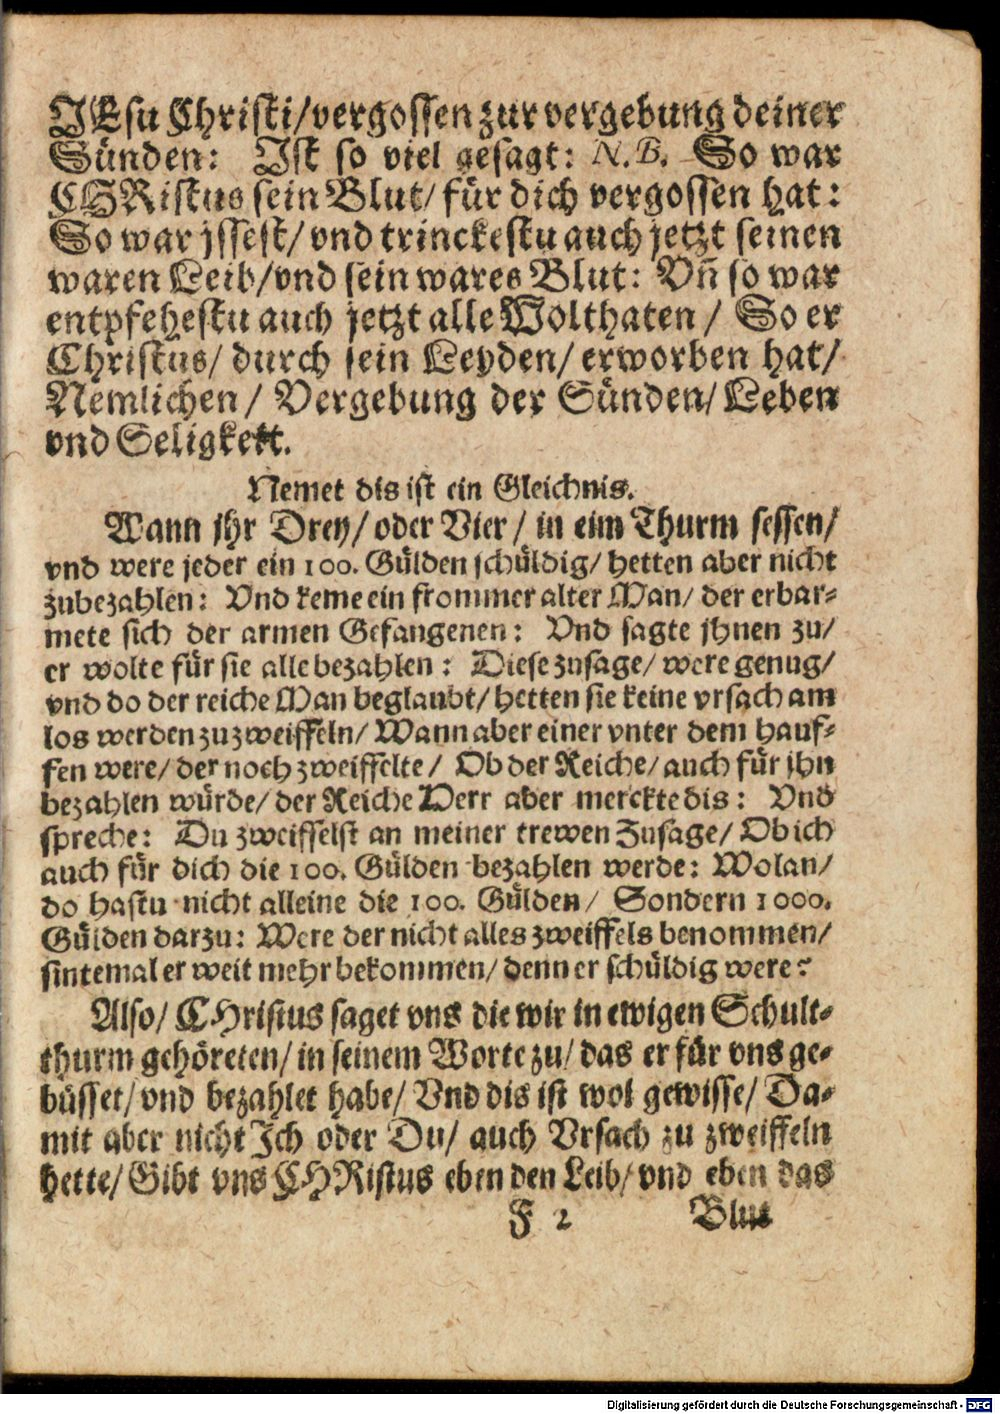 JEsu Christi/vergossen zur vergebung deiner
Sünden: Ist so viel gesagt: N. B. So war
CHRistus sein Blut/ für dich vergossen hat:
So war jssest/ vnd trinckestu auch jetzt seinen
waren Leib/vnd sein wares Blut: Vñ so war
entpfehestu auch jetzt alle Wolthaten / So er
Christus/ durch sein Leyden/ erworben hat/
Nemlichen/ Vergebung der Sünden/ Leben
vnd Seligkeit.
Nemet dis ist ein Gleichnis.
Wann jhr Drey/ oder Vier/ in eim Thurm sessen/
vnd were jeder ein 100. Gülden schüldig/ hetten aber nicht
zubezahlen: Vnd keme ein frommer alter Man/ der erbar-
mete sich der armen Gefangenen: Vnd sagte jhnen zu/
er wolte für sie alle bezahlen: Diese zusage/ were genug/
vnd do der reiche Man beglaubt/ hetten sie keine vrsach am
los werden zu zweiffeln/ Wann aber einer vnter dem hauf-
fen were/ der noch zweiffelte/ Ob der Reiche/ auch für jhn
bezahlen würde/ der Reiche Herr aber merckte dis: Vnd
spreche: Du zweiffelst an meiner trewen Zusage/ Ob ich
auch für dich die 100. Gülden bezahlen werde: Wolan/
do hastu nicht alleine die 100. Gülden/ Sondern 1000.
Gülden darzu: Were der nicht alles zweiffels benommen/
sintemal er weit mehr bekommen/ denn er schüldig were?
Also/ CHristus saget vns die wir in ewigen Schult-
thurm gehöreten/ in seinem Worte zu/ das er für vns ge-
büsset/ vnd bezahlet habe/ Vnd dis ist wol gewisse/ Da-
mit aber nicht Ich oder Du/ auch Vrsach zu zweiffeln
hette/ Gibt vns CHRistus eben den Leib/ vnd eben das
F 2 Blut
Digitalisierung gefördert durch die Deutsche Forschungsgemeinschaft - DFG